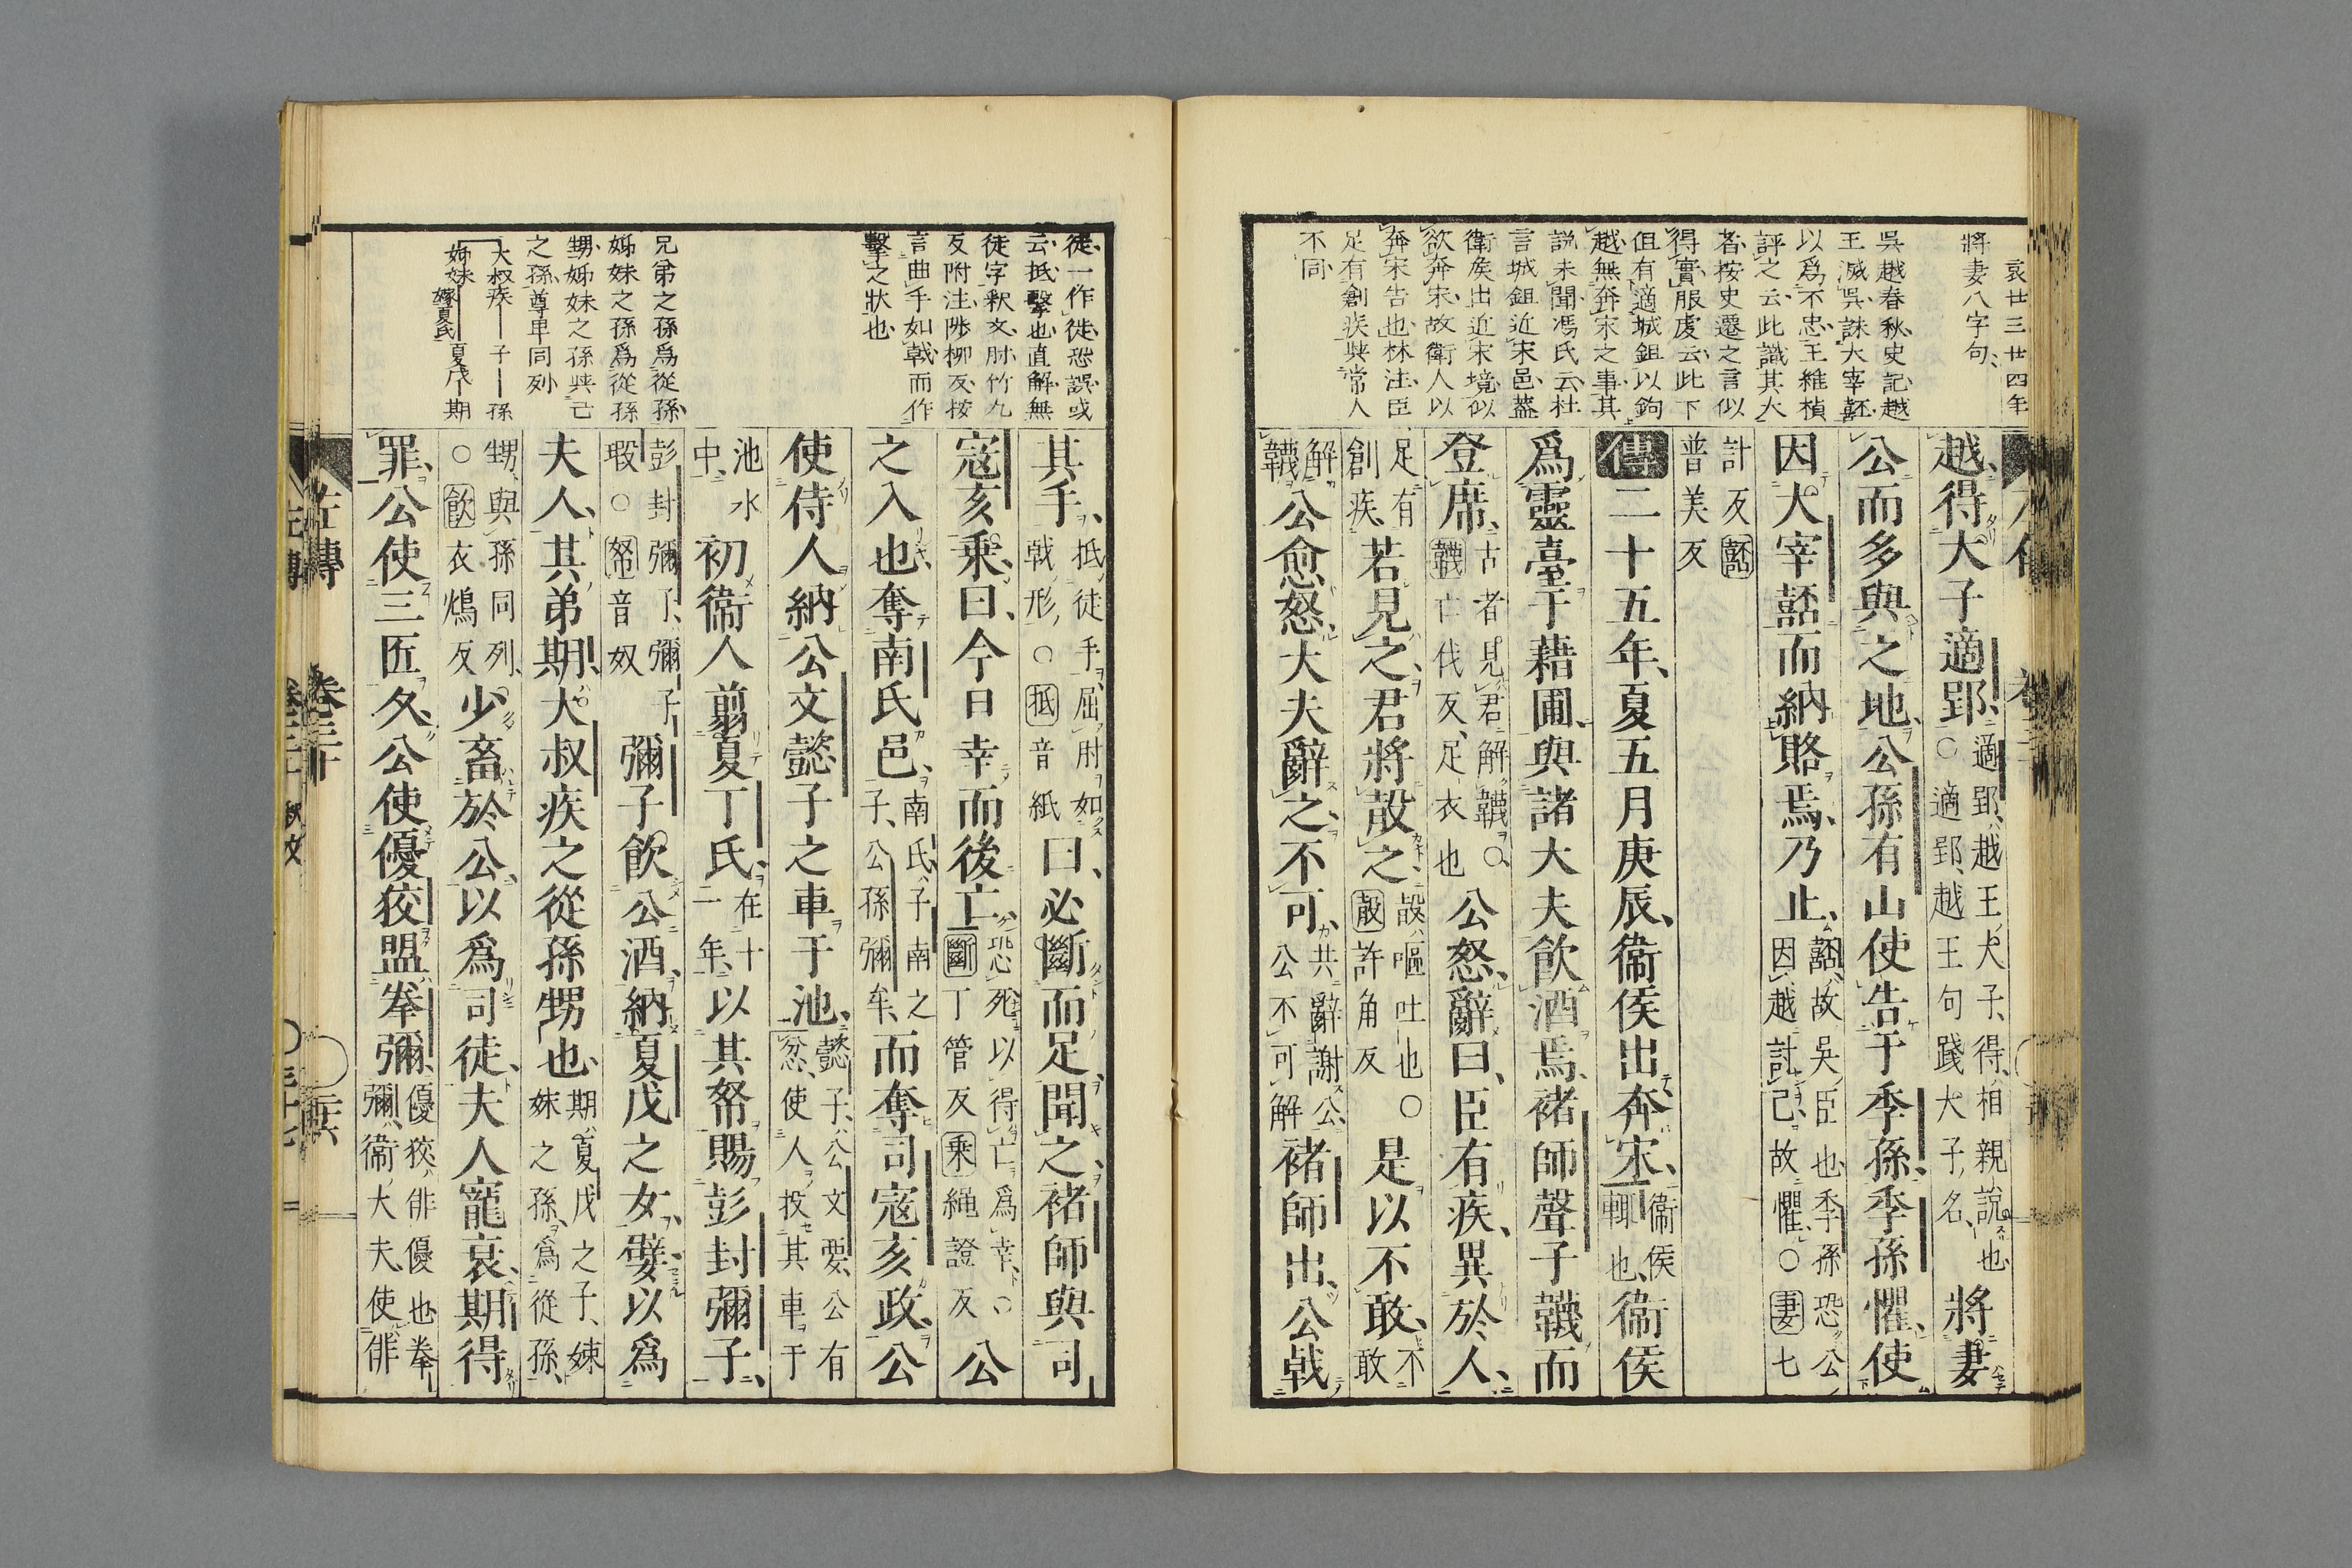 哀廿三廿四年
將妻八字句、
吳越春秋史記越
王滅吳誅大宰嚭
以爲不忠王維楨
評之云此識其大
者按史遷之言似
得實服虔云此下
伹有適城鉏以鉤
越無奔宋之事其
說未聞馮氏云杜
言城鉏近宋邑蓋
衛侯出近宋境似
欲奔宋故衛人以
奔宋告也林注臣
足有創疾與常人
不同
越、得大子適郢、適郢、越王大子、得相親說也○適郢、越王句踐大子名、將妻
公而多與之地、公孫有山使告于季孫、季孫懼、使
因大宰嚭而納賂焉、乃止、嚭、故吳臣也、季孫恐公因越討己、故懼、○妻七
計反嚭普美反
傳二十五年、夏五月庚辰、衛侯出奔宋、衛侯輒也、衛侯
爲靈臺于藉圃、與諸大夫飲酒焉、褚師聲子韤而
登席、古者見君解韤○韤亡伐反、足衣也公怒、辭曰、臣有疾、異於人、
足有創疾、若見之、君將㱿之、㱿嘔吐也○㱿許角反是以不敢、不敢
解韤公愈怒、大夫辭之、不可、共辭謝公、公不可解褚師出、公戟
徒一作徙恐誤或
云抵擊也直解無
徒字釈文肘竹九
反附注陟柳反按
言曲手如戟而作
擊之狀也
兄弟之孫爲從孫
姊妹之孫爲從孫
甥姊妹之孫與己
之孫尊卑同列
大叔疾 子 孫
姊妹 嫁夏氏 夏戊 期
其手、抵徒手屈肘如戟形、○抵音紙曰、必斷而足、聞之、褚師與司
寇亥乘、曰、今日幸而後亡、恐死、以得亡爲幸、○斷丁管反乘繩證反公
之入也、奪南氏邑、南氏、子南之子、公孫彌牟、而奪司寇亥政、公
使侍人納公文懿子之車于池、懿子、公文要、公有忿、使人投其車于
池水中、初衛人翦夏丁氏、在十二年、以其帑賜彭封彌子、
彭封彌子、彌子瑕○帑音奴彌子飲公酒、納夏戊之女、嬖、以爲
夫人、其弟期、大叔疾之從孫甥也、期、夏戊之子、姊妹之孫、爲從孫
甥、與孫同列、○飲衣鴆反少畜於公、以爲司徒、夫人寵衰、期得
罪、公使三匠久、公使優狡盟拳彌、優狡、俳優也、拳彌、衛大夫、使俳
左傳 卷三十